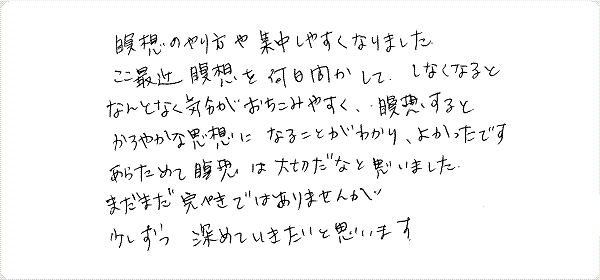 瞑想のやり方や集中しやすくなりました。
ここ最近 瞑想を何日間かして、しなくなると
なんとなく気分がおちこみやすく、瞑想すると
かろやかな思想に なることがわかり、よかったです
あらためて瞑想は大切だなと思いました。
まだまだ 完ぺきではありませんが
少しずつ 深めていきたいと思います